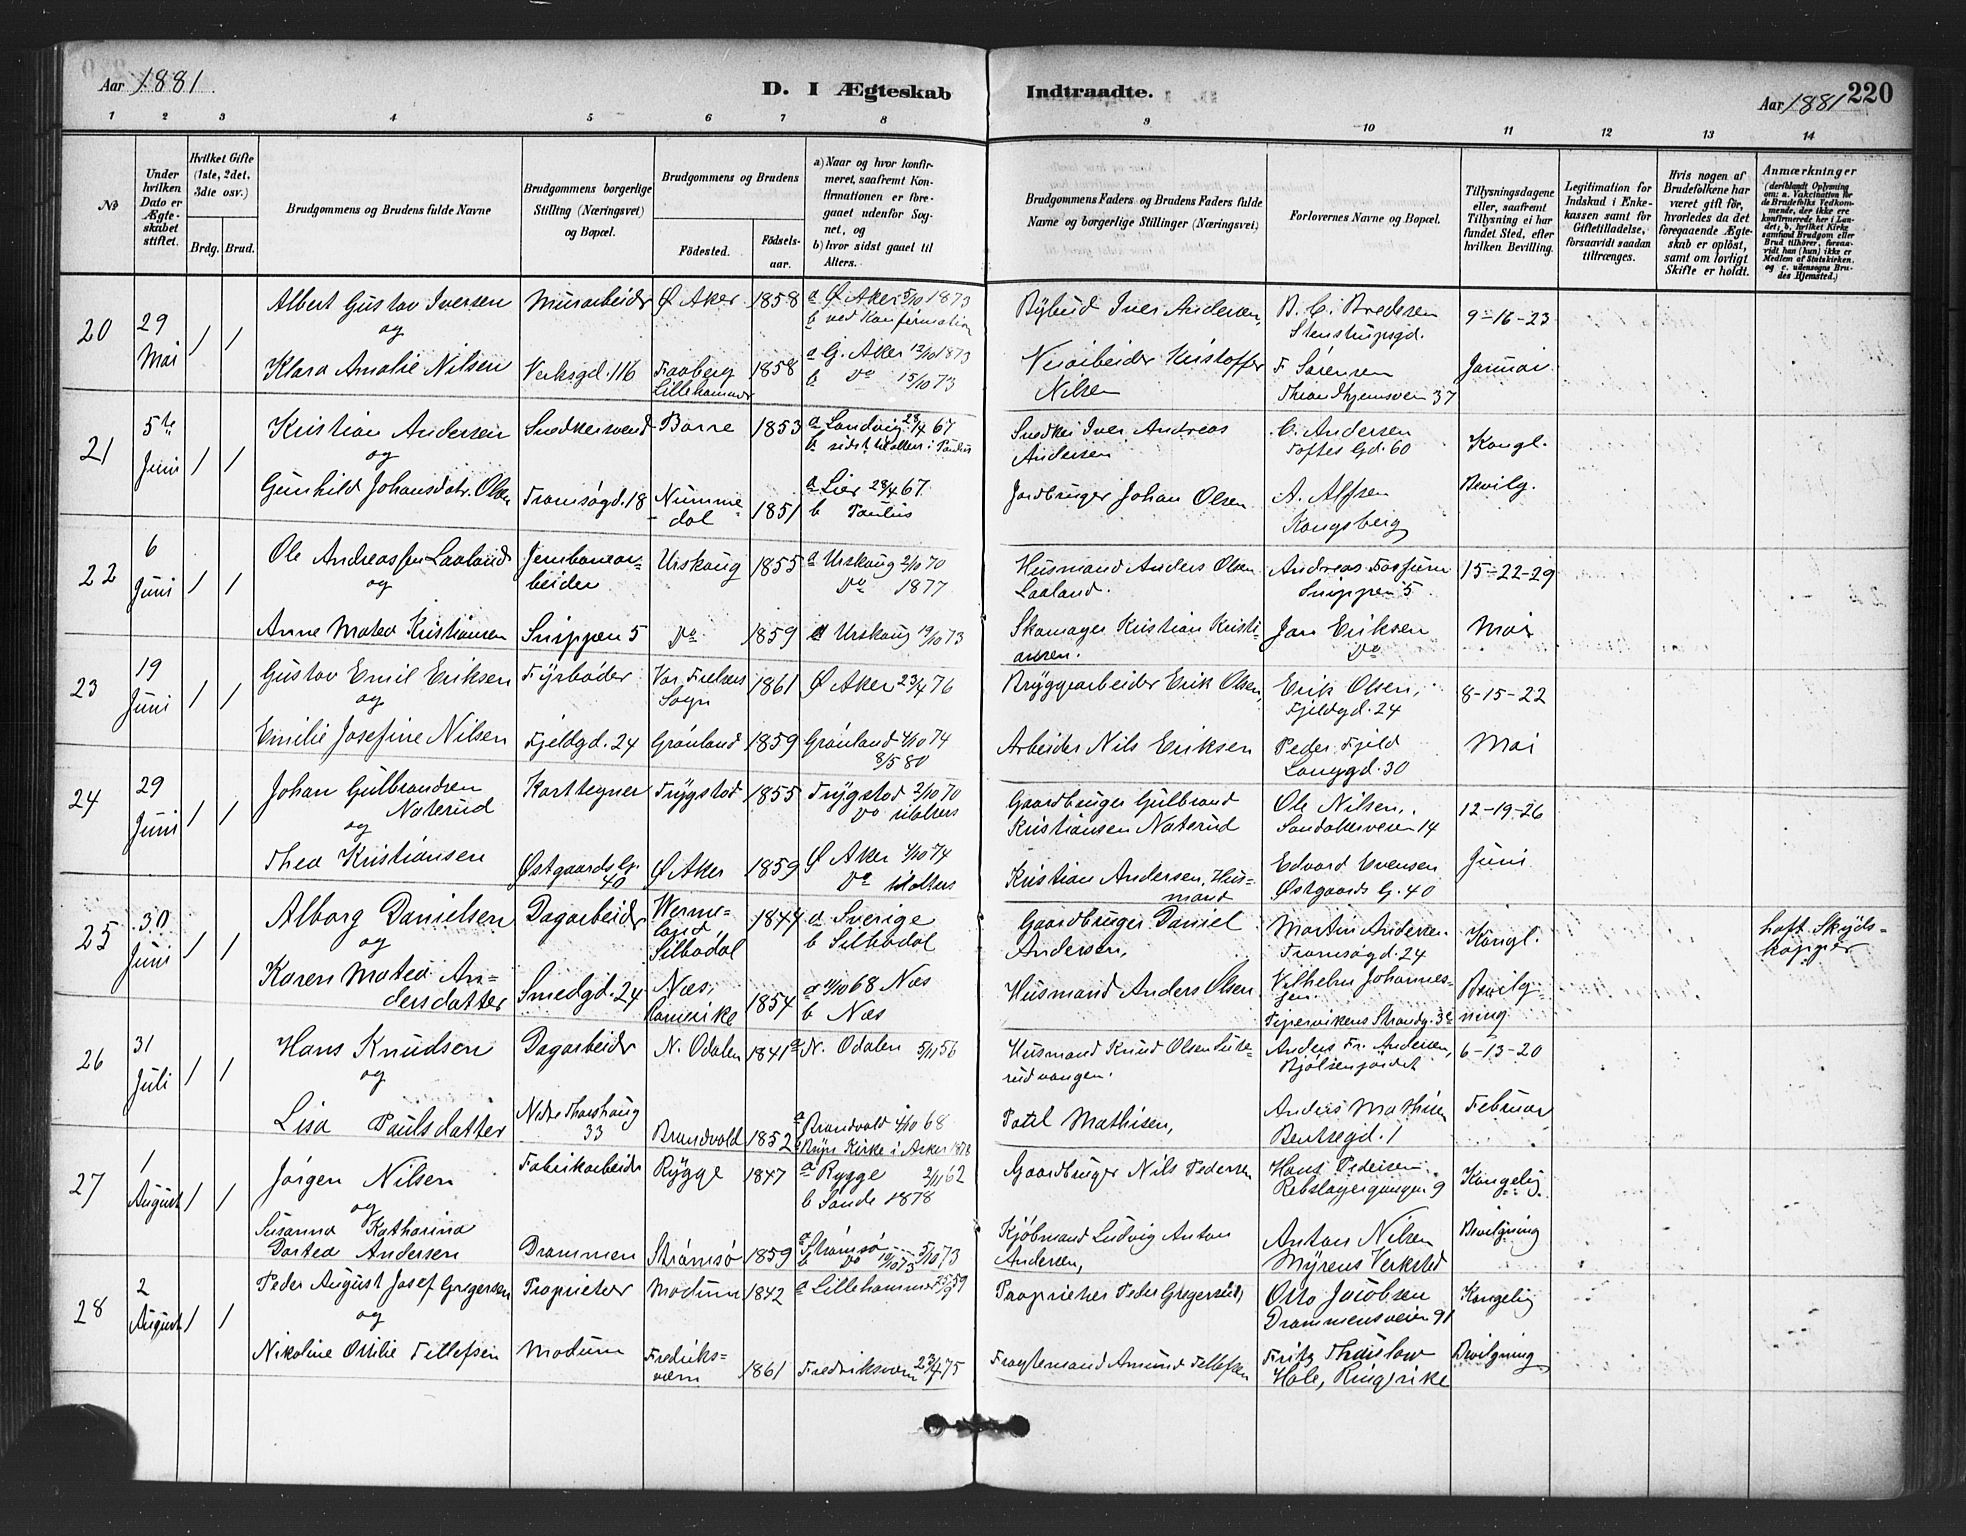 Aar 1881.
D. I Ægteskab Indtraadte.
Aar 1881 220
1 2 3 4 5 6 7 8 9 10 11 12 13 14
No
Under hvilken Dato er Ægteskabet stiftet.
Hvilket Gifte (1ste, 2det, 3die osv.)
Brdg. Brud.
Brudgommens og Brudens fulde Navne
Brudgommens borgerlige Stilling (Næringsvei) og Bopæl.
Brudgommens og Brudens
Fødested. Fødselsaar.
a) Naar og hvor konfirmeret, saafremt Konfirmationen er foregaaet udenfor Sognet, og
b) hvor sidst gaaet til Alters.
Brudgommens Faders og Brudens Faders fulde Navne og borgerlige Stillinger (Næringsvei)
Forlovernes Navne og Bopæl.
Tillysningsdagene eller, saafremt Tillysning ei har fundet Sted, efter hvilken Bevilling.
Legitimation for Indskud i Enkekassen samt for Giftetilladelse, forsaavidt saadan tiltrænges.
Hvis nogen af Brudefolkene har været gift før, hvorledes da det foregaaende Ægteskab er opløst, samt om lovligt Skifte er holdt.
Anmærkninger
(deriblandt Oplysning om: a. Vakcination for de Brudefolks Vedkommende, der ikke ere konfirmerede her i Landet; b. hvilket Kirkesamfund Brudgom eller Brud tilhører, forsaavidt han (hun) ikke er Medlem af Statskirken, og c. udensogns Brudes Hjemsted.)
20 29 Mai 1 1 Albert Gustav Iversen Murarbeider Ø Aker 1858 a Ø Aker 5/10 1873 b ved Konfirmation Iver Andersen, B. C. Bredesen Stenstrupsgd. 9-16-23
og
Klara Amalie Nilsen Verksgd. 116 Faaberg Lillehammer 1858 a G. Aker 12/10 1873 b Do 15/10 73 Veiarbeider Kristoffer Nilsen F Sørensen 37 Januar
21 5te Juni 1 1 Kristian Andersen Snedkersvend Borre 1853 a Landvig 28/4 67 b sidst til alters i Paulus Snedker Iver Andreas Andersen C. Andersen Toftes Gd. 60 Kongl.
og
Gunhild Johansdatr. Olsen Tromsøgd. 18 Nummedal 1851 a Lier 28/4 67. b Paulus Jordbruger Johan Olsen A. Alfsen Kongsberg Bevilg.
22 6 Juni 1 1 Ole Andreassen Laaland Jernbanearbeider Urskoug 1855 a Urskoug 2/10 70 Do 1877 Husmand Anders Olsen Laaland. Andreas Fossum Snippen 5 15-22-29
og
Anne Matea Kristiansen Snippen 5 Do 1859 a Urskoug 19/10 73 Skomager Kristian Kristiansen. Jan Eriksen Do Mai
23 19 Juni 1 1 Gustav Emil Eriksen Fyrbøder Vor Frelsers Sogn 1861 Ø Aker 23/4 76 Bryggearbeider Erik Olsen, Erik Olsen, Fjeldgd. 24 8-15-22
og
Emilie Josefine Nilsen Fjeldgd. 24 Grønland 1859 Grønland 4/10 74 8/5 80 Arbeider Nils Eriksen Peder Fjeld Langgd. 30 Mai
24 29 Juni 1 1 Johan Gulbrandsen Naterud Karttegner Trygstad 1855 Trygstad 2/10 70 Do til alters Gaardbruger Gulbrand Kristiansen Naterud Ole Nilsen, Sandakerveien 14 12-19-26
og
Thea Kristiansen Østgaards G. 40 Ø Aker 1859 Ø Aker 4/10 74 Do til alters Kristian Andersen, Husmand Edvard Evensen Østgaards G. 40 Juni
25 30 Juni 1 1 Alborg Danielsen Dagarbeider Wermeland Silbodal 1844 a Sverige b Silbodal Gaardbruger Daniel Andersen, Martin Andersen Tromsøgd. 24 Kongl. haft Skydskopper
og
Karen Matea Andersdatter Smedgd. 24 Næs, Romerike 1854 a 11/10 68 Næs b Næs Husmand Anders Olsen Vilhelm Johannessen. Pipervikens Strandg. Bevilgning
26 31 Juli 1 1 Hans Knudsen Dagarbeider N. Odalen 1841 a N. Odalen 5/11 56 Husmand Knud Olsen Anders Fr. Andersen, Bjølsenjordet 6-13-20
og
Lisa Paulsdatter Nedre Thorshaug 33 Brandvold 1852 a Brandvold 4/10 68 b Kirke i Aker 1878 Paul Mathisen, Anders Mathisen Bentsegd. 1 Februar
27 1 August 1 1 Jørgen Nilsen Fabrikarbeider Rygge 1847 a Rygge 2/11 62 b Sande 1878 Gaardbruger Nils Pedersen Hans Pedersen. Rebslagergangen 9 Kongelig
og
Susanna Katharina Dortea Andersen Drammen Strømsø 1859 a Strømsø 5/10 73 b Do 19/10 73 Kjøbmand Ludvig Anton Andersen, Anton Nilsen Myrens Verksted Bevilgning
28 2 August 1 1 Peder August Josef Gregersen Proprietær Modum 1842 a Lillehammer 25/9 59 Proprietær Peder Gregersen, Otto Jacobsen Drammensveien 91 Kongelig
og
Nikoline Otilie Tellefsen Modum Fredriksværn 1861 Fredriksværn 23/4 75 Fragtemand Amund Tellefsen Fritz Thaulow Hole, Ringerike Bevilgning